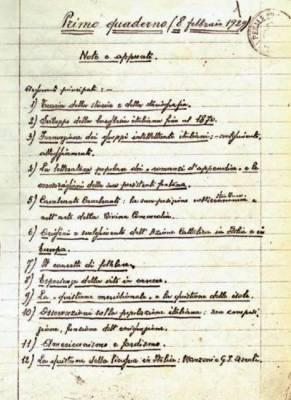 Primo quaderno (8 febbraio 1929)
Note e appunti.
Argomenti principali:—
1) Teoria della storia e della storiografia.
2) Sviluppo della borghesia italiana fino al 1870.
3) Formazione dei gruppi intellettuali italiani: svolgimento,
atteggiamenti.
4) La letteratura popolare dei "romanzi d'appendice" e le
ragioni della sua persistente fortuna.
5) Cavalcante Cavalcanti: la sua posizione nella struttura
e nell'arte della Divina Commedia.
6) Origini e svolgimento dell'Azione Cattolica in Italia e in
Europa.
7) Il concetto di folklore.
8) Esperienze della vita in carcere.
9) La "quistione meridionale" e la quistione delle isole.
10) Osservazioni sulla popolazione italiana: sua composi-
zione, funzione dell'emigrazione.
11) Americanismo e fordismo.
12) La quistione della lingua in Italia: Manzoni e G. I. Ascoli.